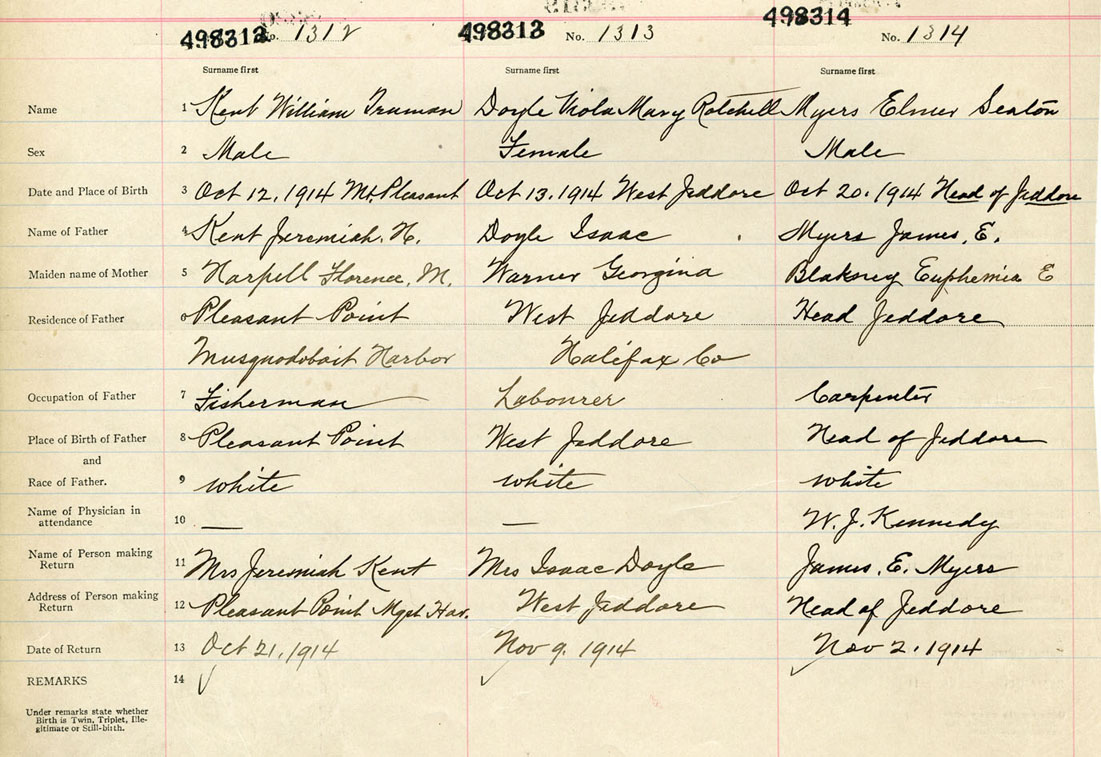 498312 No. 1312 498313 No. 1313 498314 No. 1314
Surname first Surname first Surname first
Name 1 Kent William Truman Doyle Viola Mary Rotchell Myers Elmer Seaton
Sex 2 Male Female Male
Date and Place of Birth 3 Oct 12, 1914 Mt. Pleasant Oct 13. 1914 West Jeddore Oct 20. 1914 Head of Jeddore
Name of Father 4 Kent Jeremiah. H. Doyle Isaac Myers James, E.
Maiden name of Mother 5 Harpell Florence, M. Warner Georgina Blaksney Euphemia E
Residence of Father 6 Pleasant Point West Jeddore Head Jeddore
Musquodoboit Harbor Halifax Co
Occupation of Father 7 Fisherman Labourer Carpenter
Place of Birth of Father 8 Pleasant Point West Jeddore Head of Jeddore
and
Race of Father. 9 white white white
Name of Physician in
attendance 10 — — W. J. Kennedy
Name of Person making
Return 11 Mrs Jeremiah Kent Mrs Isaac Doyle James. E. Myers
Address of Person making
Return 12 Pleasant Point Mqst Har. West Jeddore Head of Jeddore
Date of Return 13 Oct 21, 1914 Nov 9. 1914 Nov 2. 1914
REMARKS 14
Under remarks state whether
Birth is Twin, Triplet, Ille-
gitimate or Still-birth.